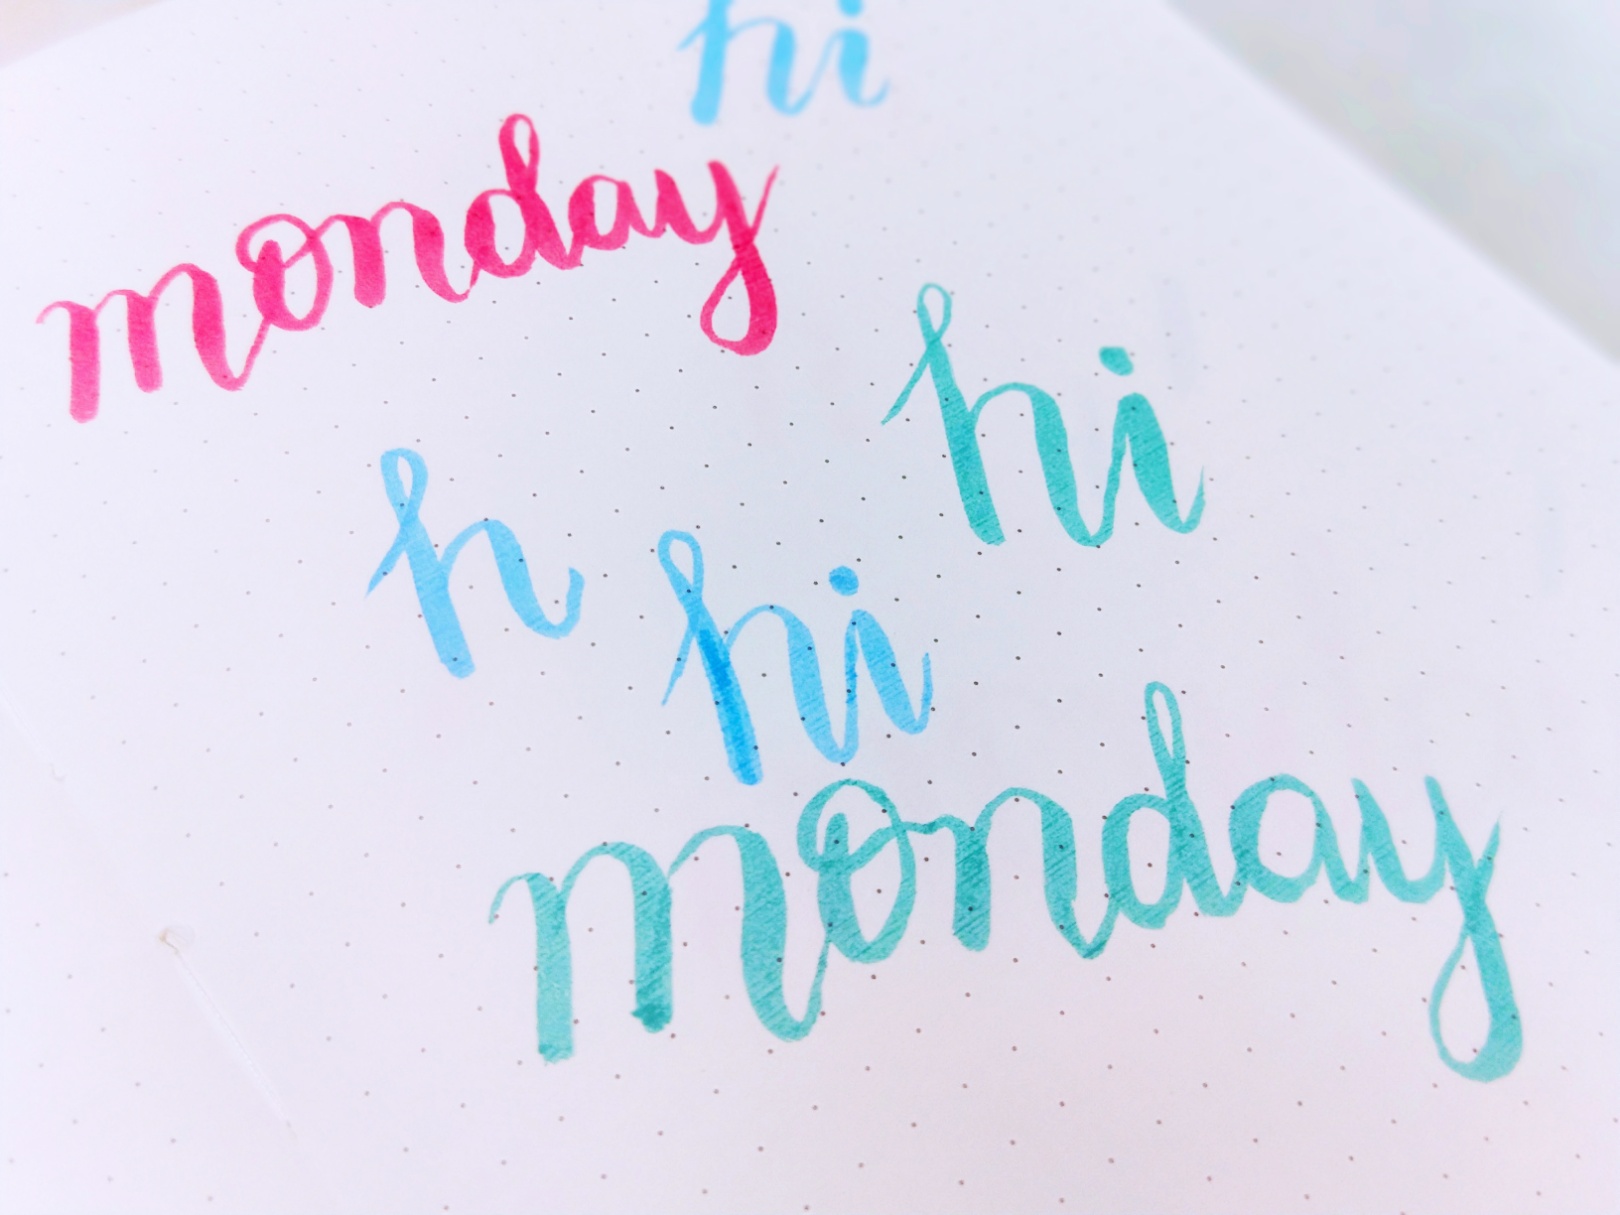 hi
monday
hi
h
hi
monday